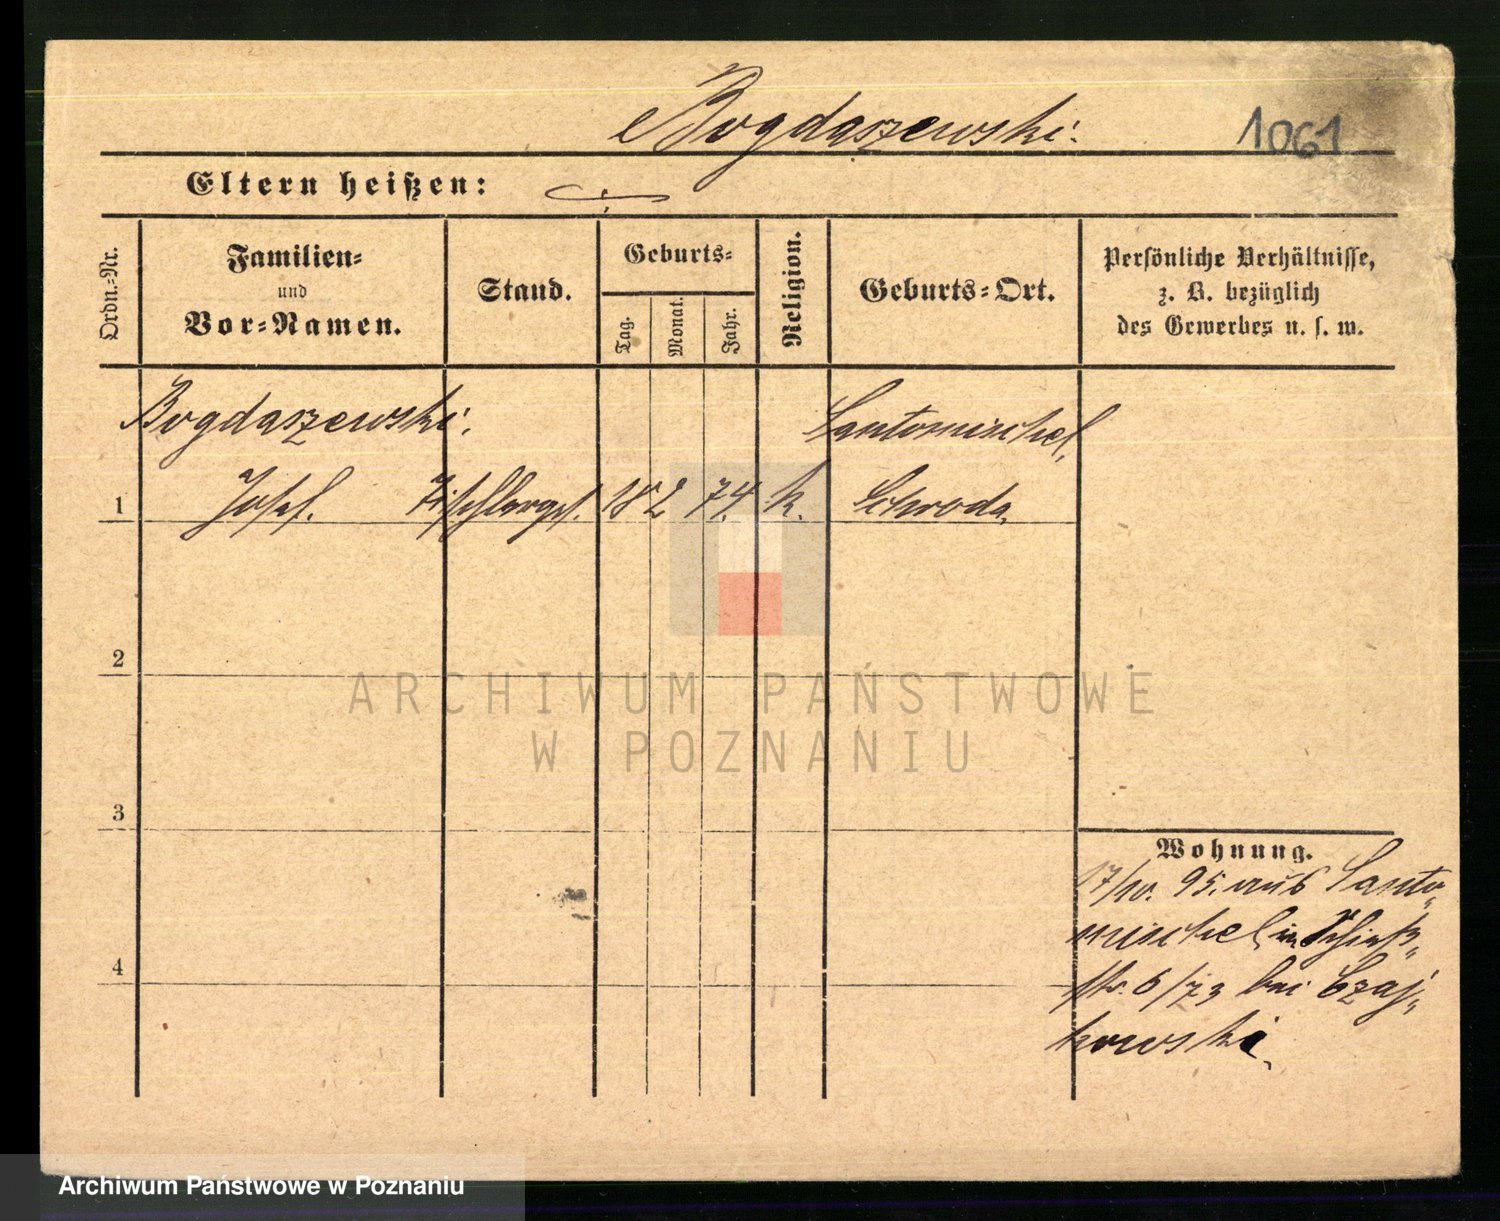 Bogdaszewski.
1061
Eltern heißen:
Ordn.-Nr.
Familien-
und
Vor-Namen.
Stand.
Geburts-
Tag.
Monat.
Jahr.
Religion.
Geburts-Ort.
Persönliche Verhältnisse,
z. B. bezüglich
des Gewerbes u. s. w.
Bogdaszewski,
Santomischel,
1 Josef. Tischlerges. 18 2 74. k. Schroda.
2
ARCHIWUM PAŃSTWOWE
W POZNANIU
3
Wohnung.
17/10. 95. aus Santo-
mischel, in Schieß-
str. 6/73 bei Czaj-
kowski.
4
Archiwum Państwowe w Poznaniu